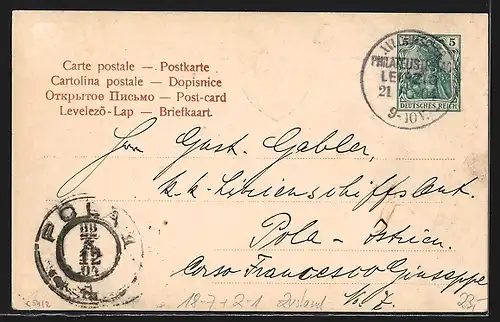 Carte postale — Postkarte
Cartolina postale — Dopisnice
Открытое Письмо — Post-card
Levelező-Lap — Briefkaart.
5
DEUTSCHES REICH
LEIPZIG
21
9-10V.
Gust. Gabler,
k. k. Linienschiffslieut.
Pola - Istrien.
Corso Francesco Giuseppe
N. 7.
POLA 1
X
12
04
18-7+2-1 Zustand